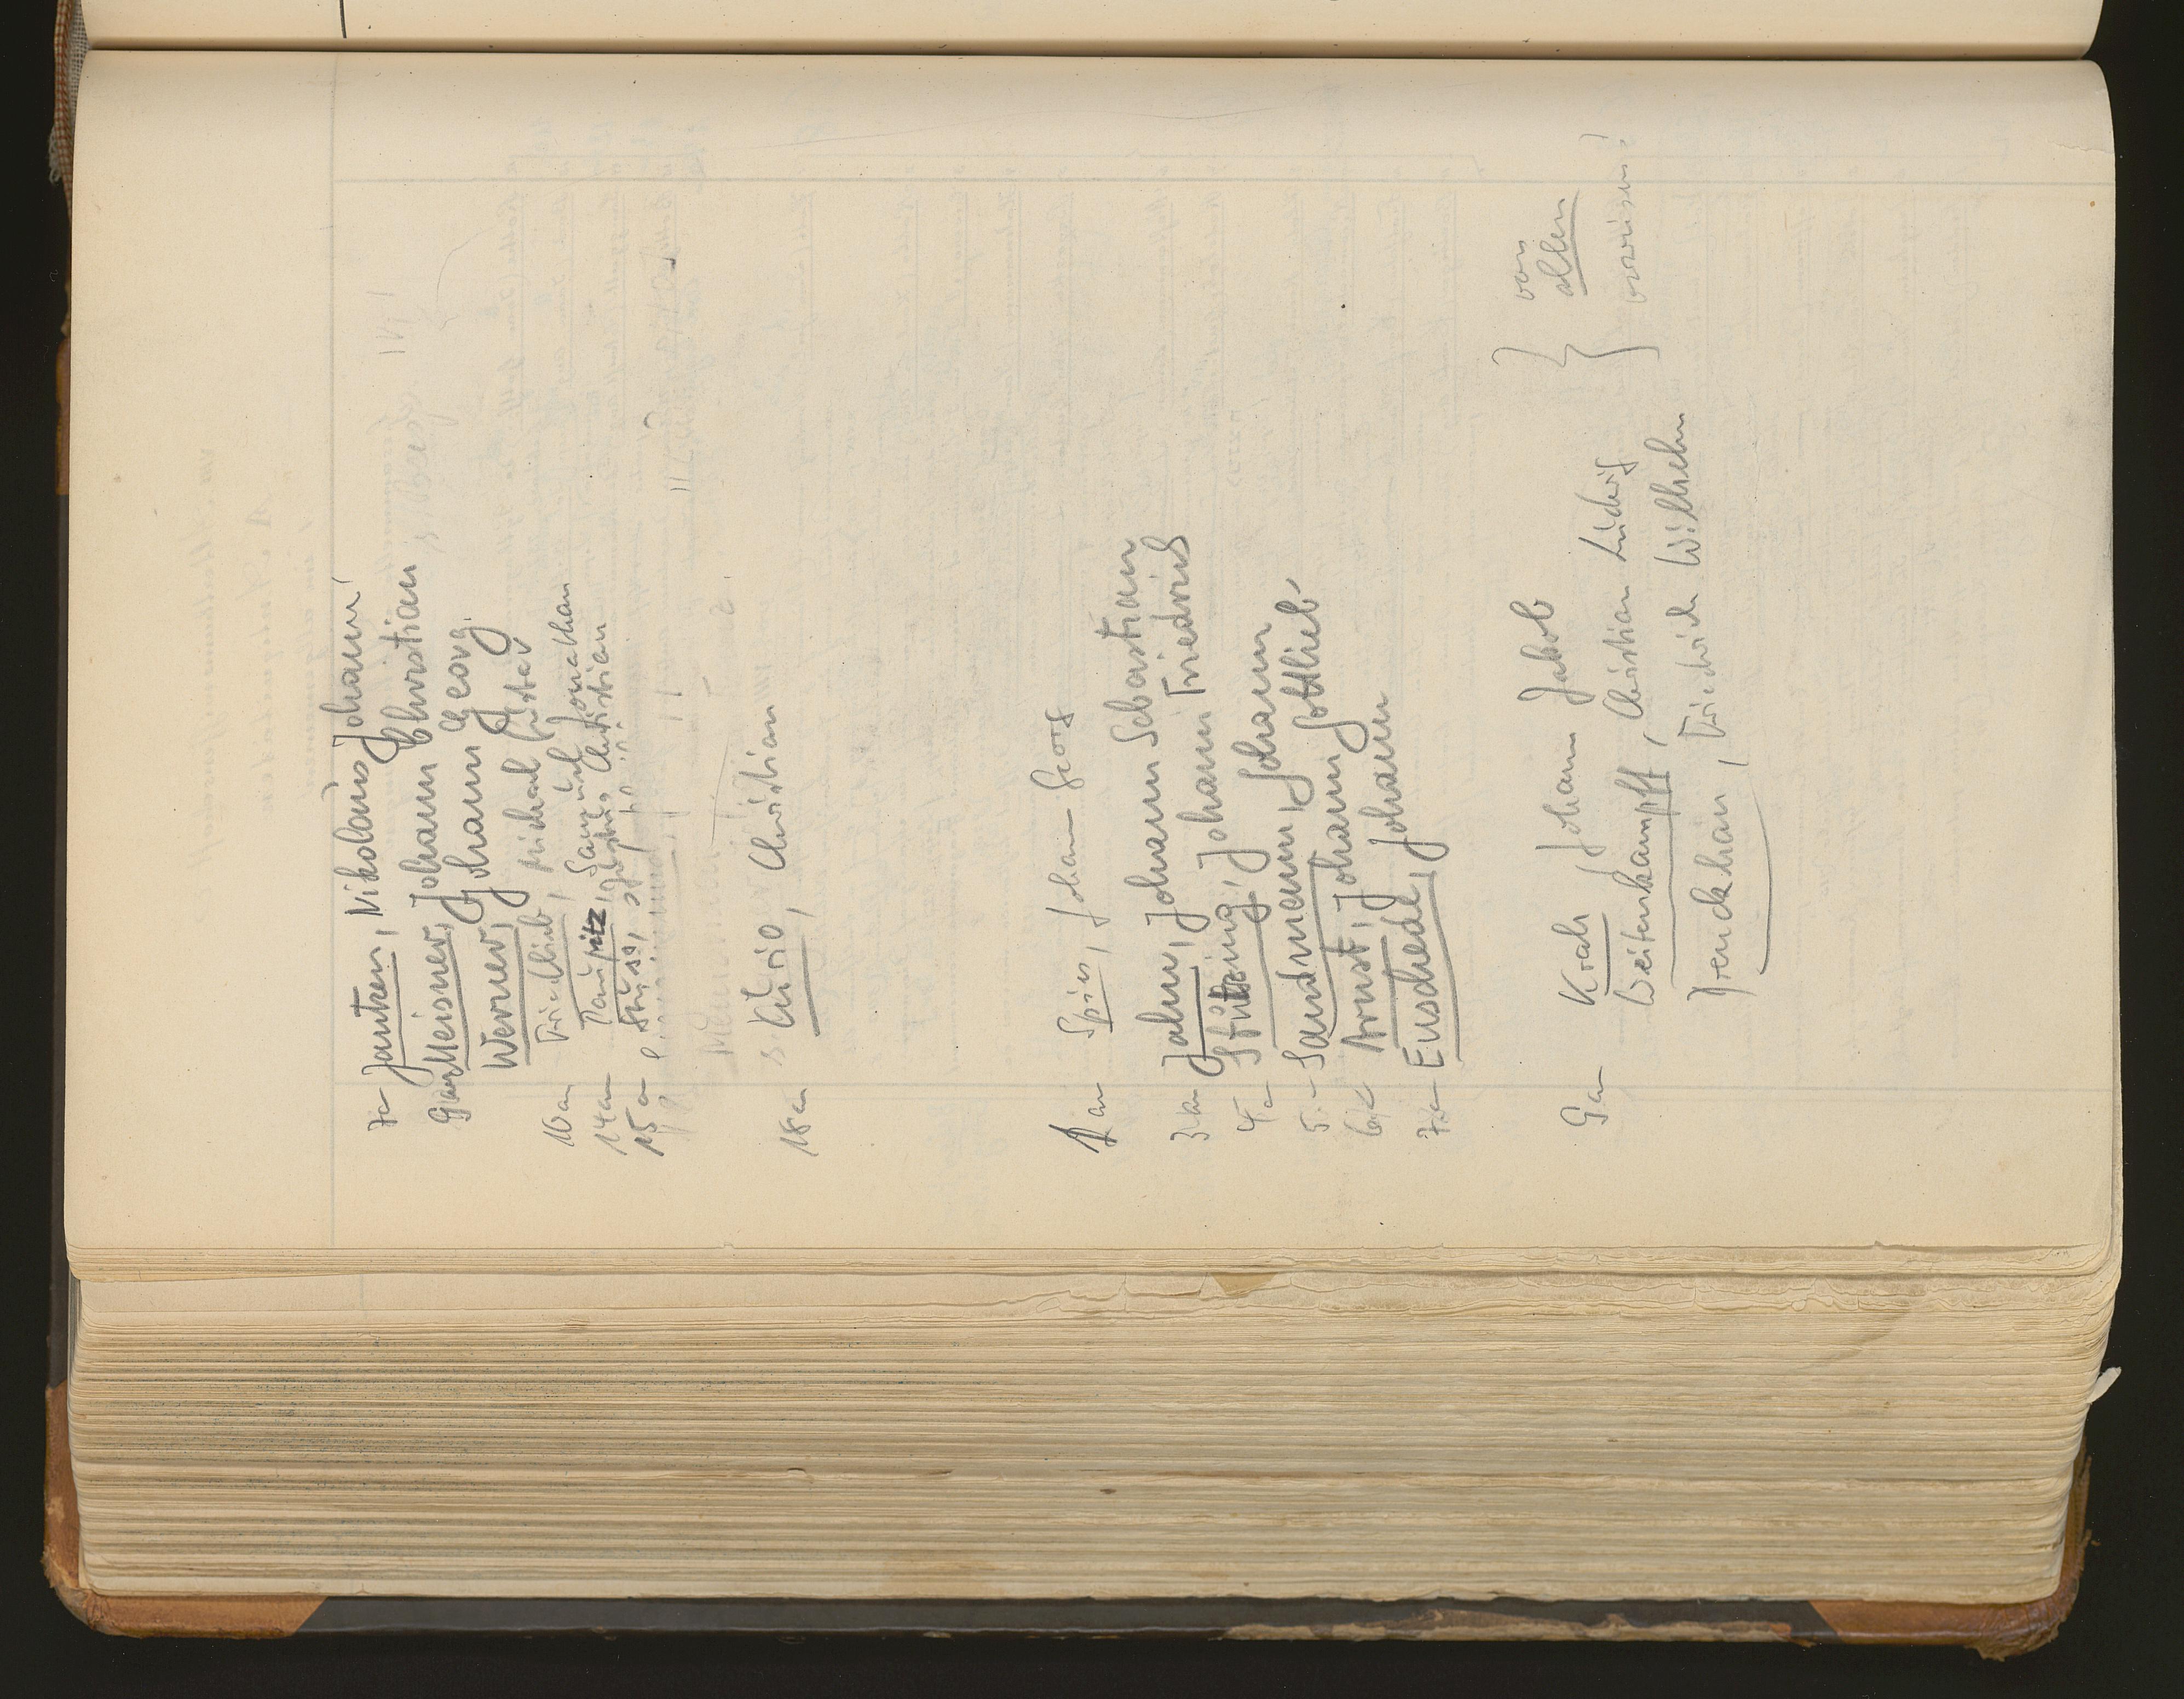 7a Jentzen, Nikolaus Johann
9a Meisner, Johann Christian
Werner, Johann Georg
10a Friedlieb, Michael Gustav
14a Taupitz, Samuel Jonathan
15a Stüss, Christian
18a Kürio, Christian
1a Spies, Johann Georg
3a Jahn, Johann Sebastian
4a Stüting, Johann Friedrich
5a Sandmann, Johann
6a Arnst, Johann Gottlieb
7a Enschede, Johann
9a Krah, Johann Jakob
Weitenkampff, Christian Ludwig
Jenckhain, Friedrich Wilhelm
von
allen